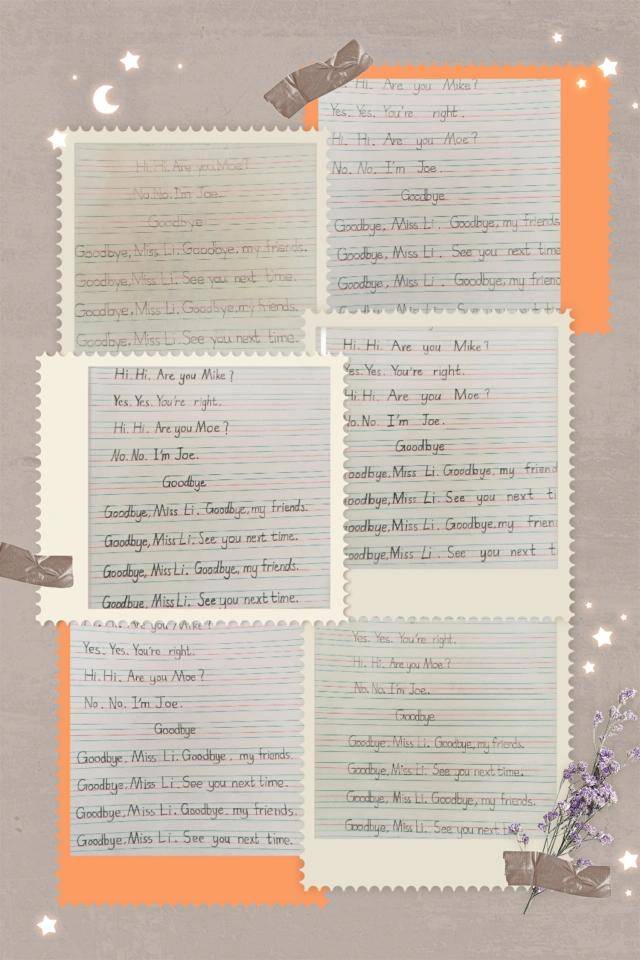 Hi. Hi. Are you Moe?
No. No. I'm Joe.
Goodbye
Goodbye, Miss Li. Goodbye, my friends.
Goodbye, Miss Li. See you next time.
Goodbye, Miss Li. Goodbye, my friends.
Goodbye, Miss Li. See you next time.
Hi. Are you Mike?
Yes. Yes. You're right.
Hi. Hi. Are you Moe?
No. No. I'm Joe.
Goodbye
Goodbye, Miss Li. Goodbye, my friends
Goodbye, Miss Li. See you next time
Goodbye, Miss Li. Goodbye, my friend
Hi. Hi. Are you Mike?
Yes. Yes. You're right.
Hi. Hi. Are you Moe?
No. No. I'm Joe.
Goodbye
Goodbye, Miss Li. Goodbye, my friends.
Goodbye, Miss Li. See you next time.
Goodbye, Miss Li. Goodbye, my friends.
Goodbye, Miss Li. See you next time.
Hi. Hi. Are you Mike?
Yes. Yes. You're right.
Hi. Hi. Are you Moe?
No. No. I'm Joe.
Goodbye
oodbye, Miss Li. Goodbye, my friend
oodbye, Miss Li. See you next ti
oodbye, Miss Li. Goodbye, my frien
oodbye, Miss Li. See you next t
Are you Mike?
Yes. Yes. You're right.
Hi. Hi. Are you Moe?
No. No. I'm Joe.
Goodbye
Goodbye, Miss Li. Goodbye, my friends.
Goodbye, Miss Li. See you next time.
Goodbye, Miss Li. Goodbye, my friends.
Goodbye, Miss Li. See you next time.
Yes. Yes. You're right.
Hi. Hi. Are you Moe?
No. No. I'm Joe.
Goodbye
Goodbye, Miss Li. Goodbye, my friends.
Goodbye, Miss Li. See you next time.
Goodbye, Miss Li. Goodbye, my friends.
Goodbye, Miss Li. See you next